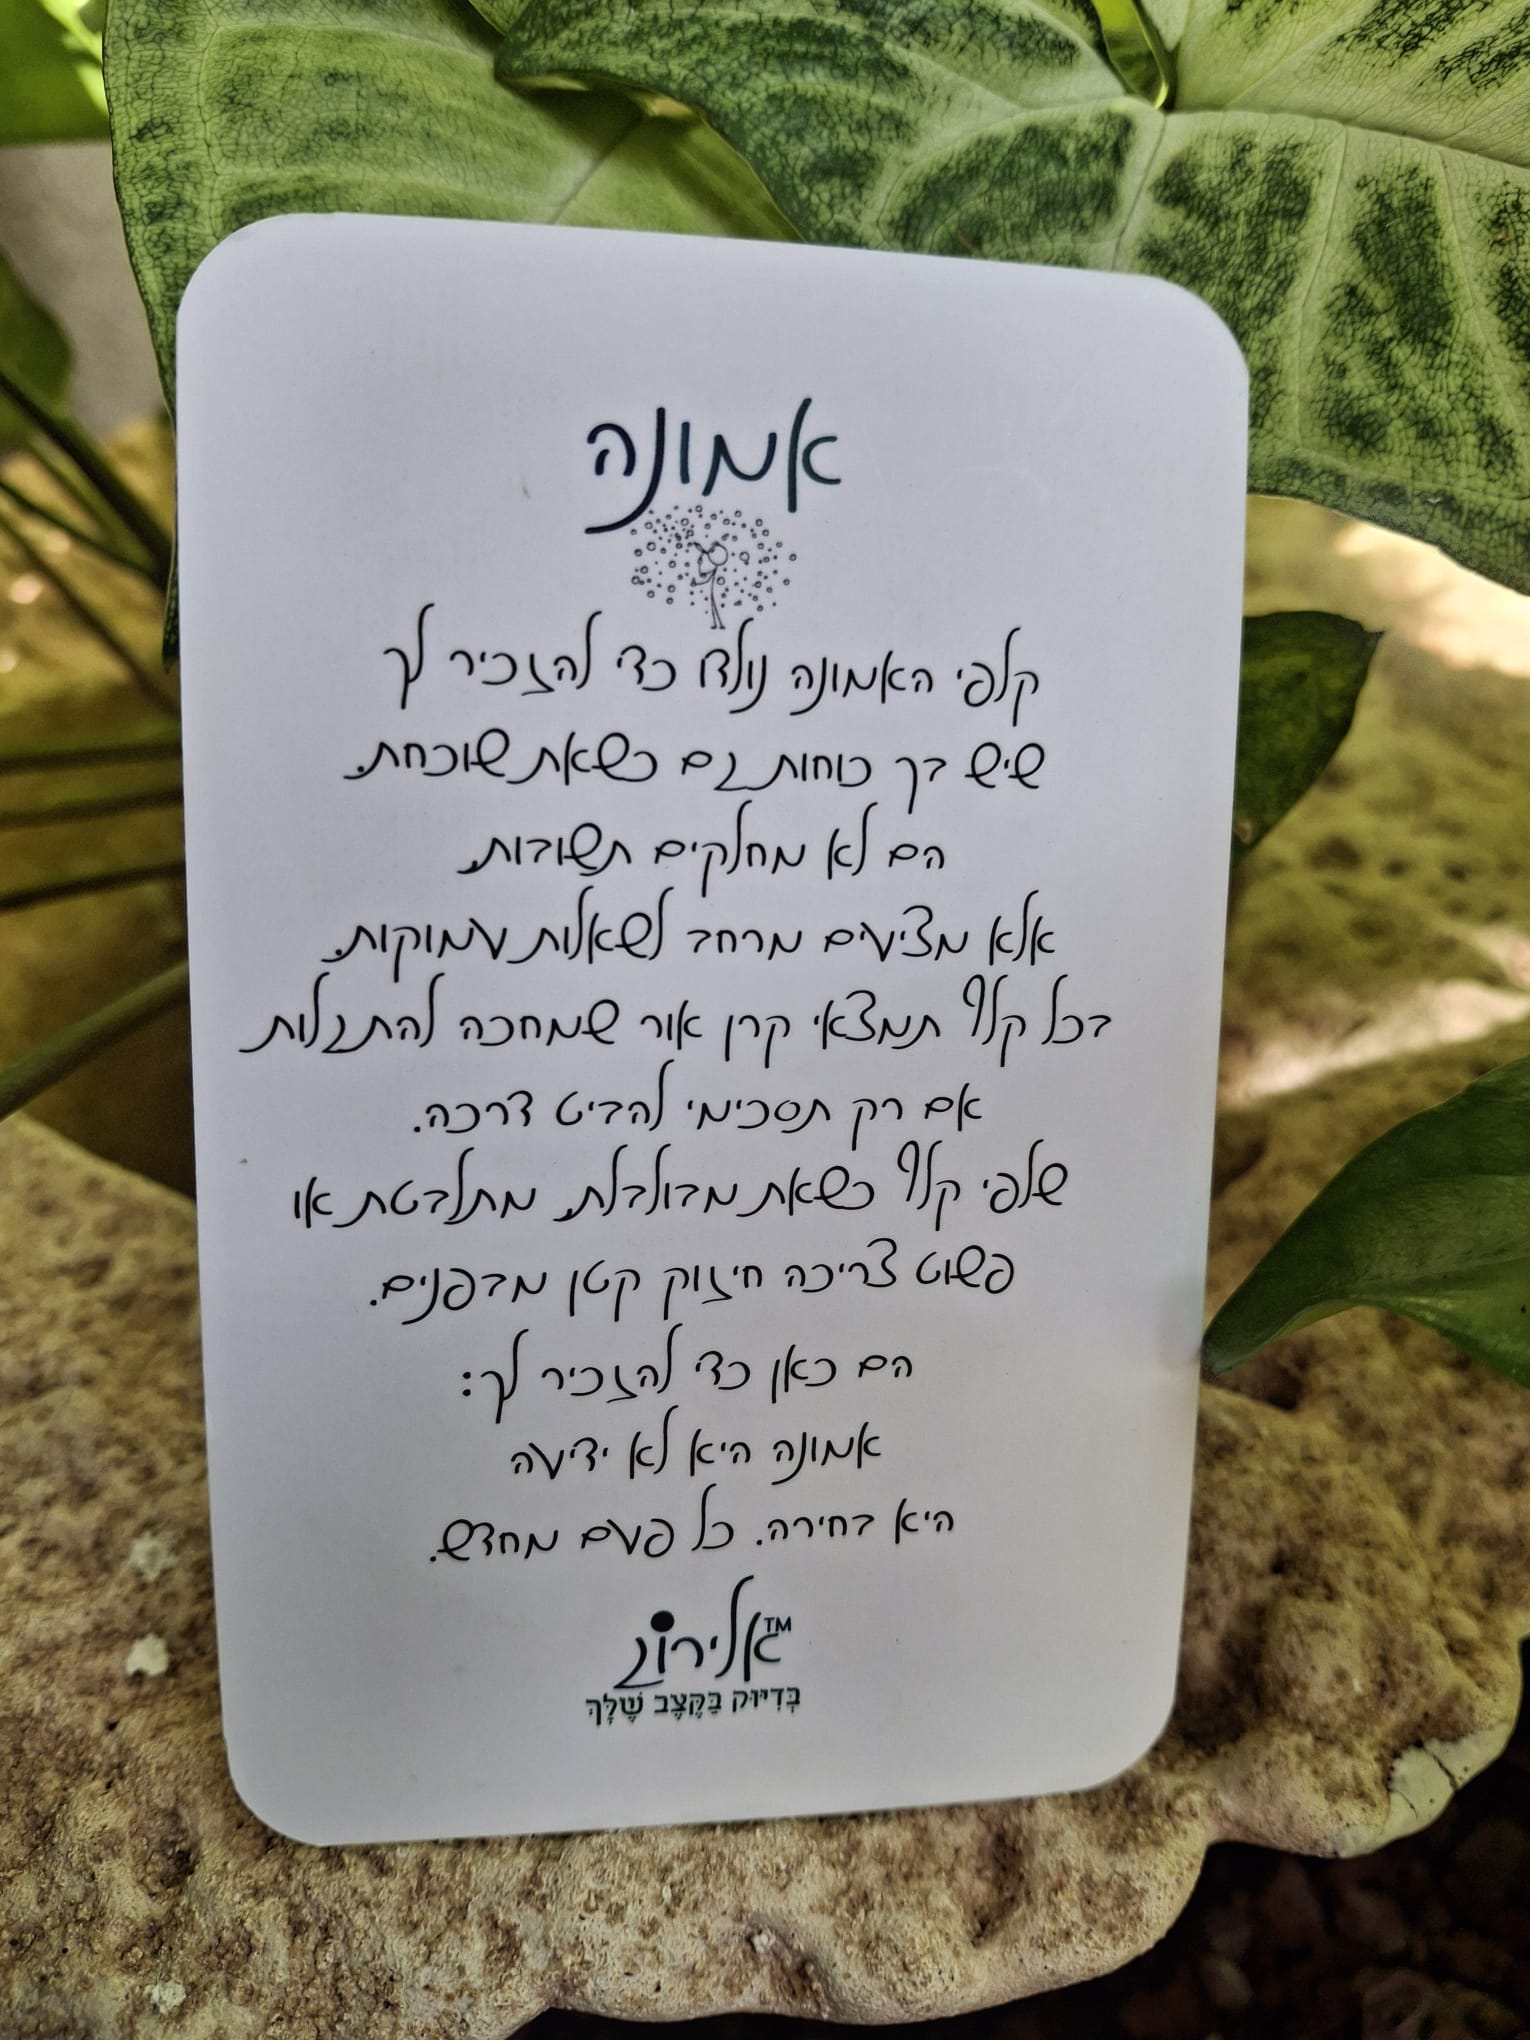 אמונה
קלפי האמונה נולדו כדי להזכיר לך
שיש בך כוחות גם כשאת שוכחת.
הם לא מחלקים תשובות,
אלא מציעים מרחב לשאלות עמוקות.
בכל קלף תמצאי קרן אור שמחכה להתגלות
אם רק תסכימי להביט דרכה.
שלפי קלף כשאת מבולבלת, מתלבטת או
פשוט צריכה חיזוק קטן מבפנים.
הם כאן כדי להזכיר לך:
אמונה היא לא ידיעה
היא בחירה. כל פעם מחדש.
אלירוֹן™
בְּדִיּוּק בַּקֶּצֶב שֶׁלָּךְ